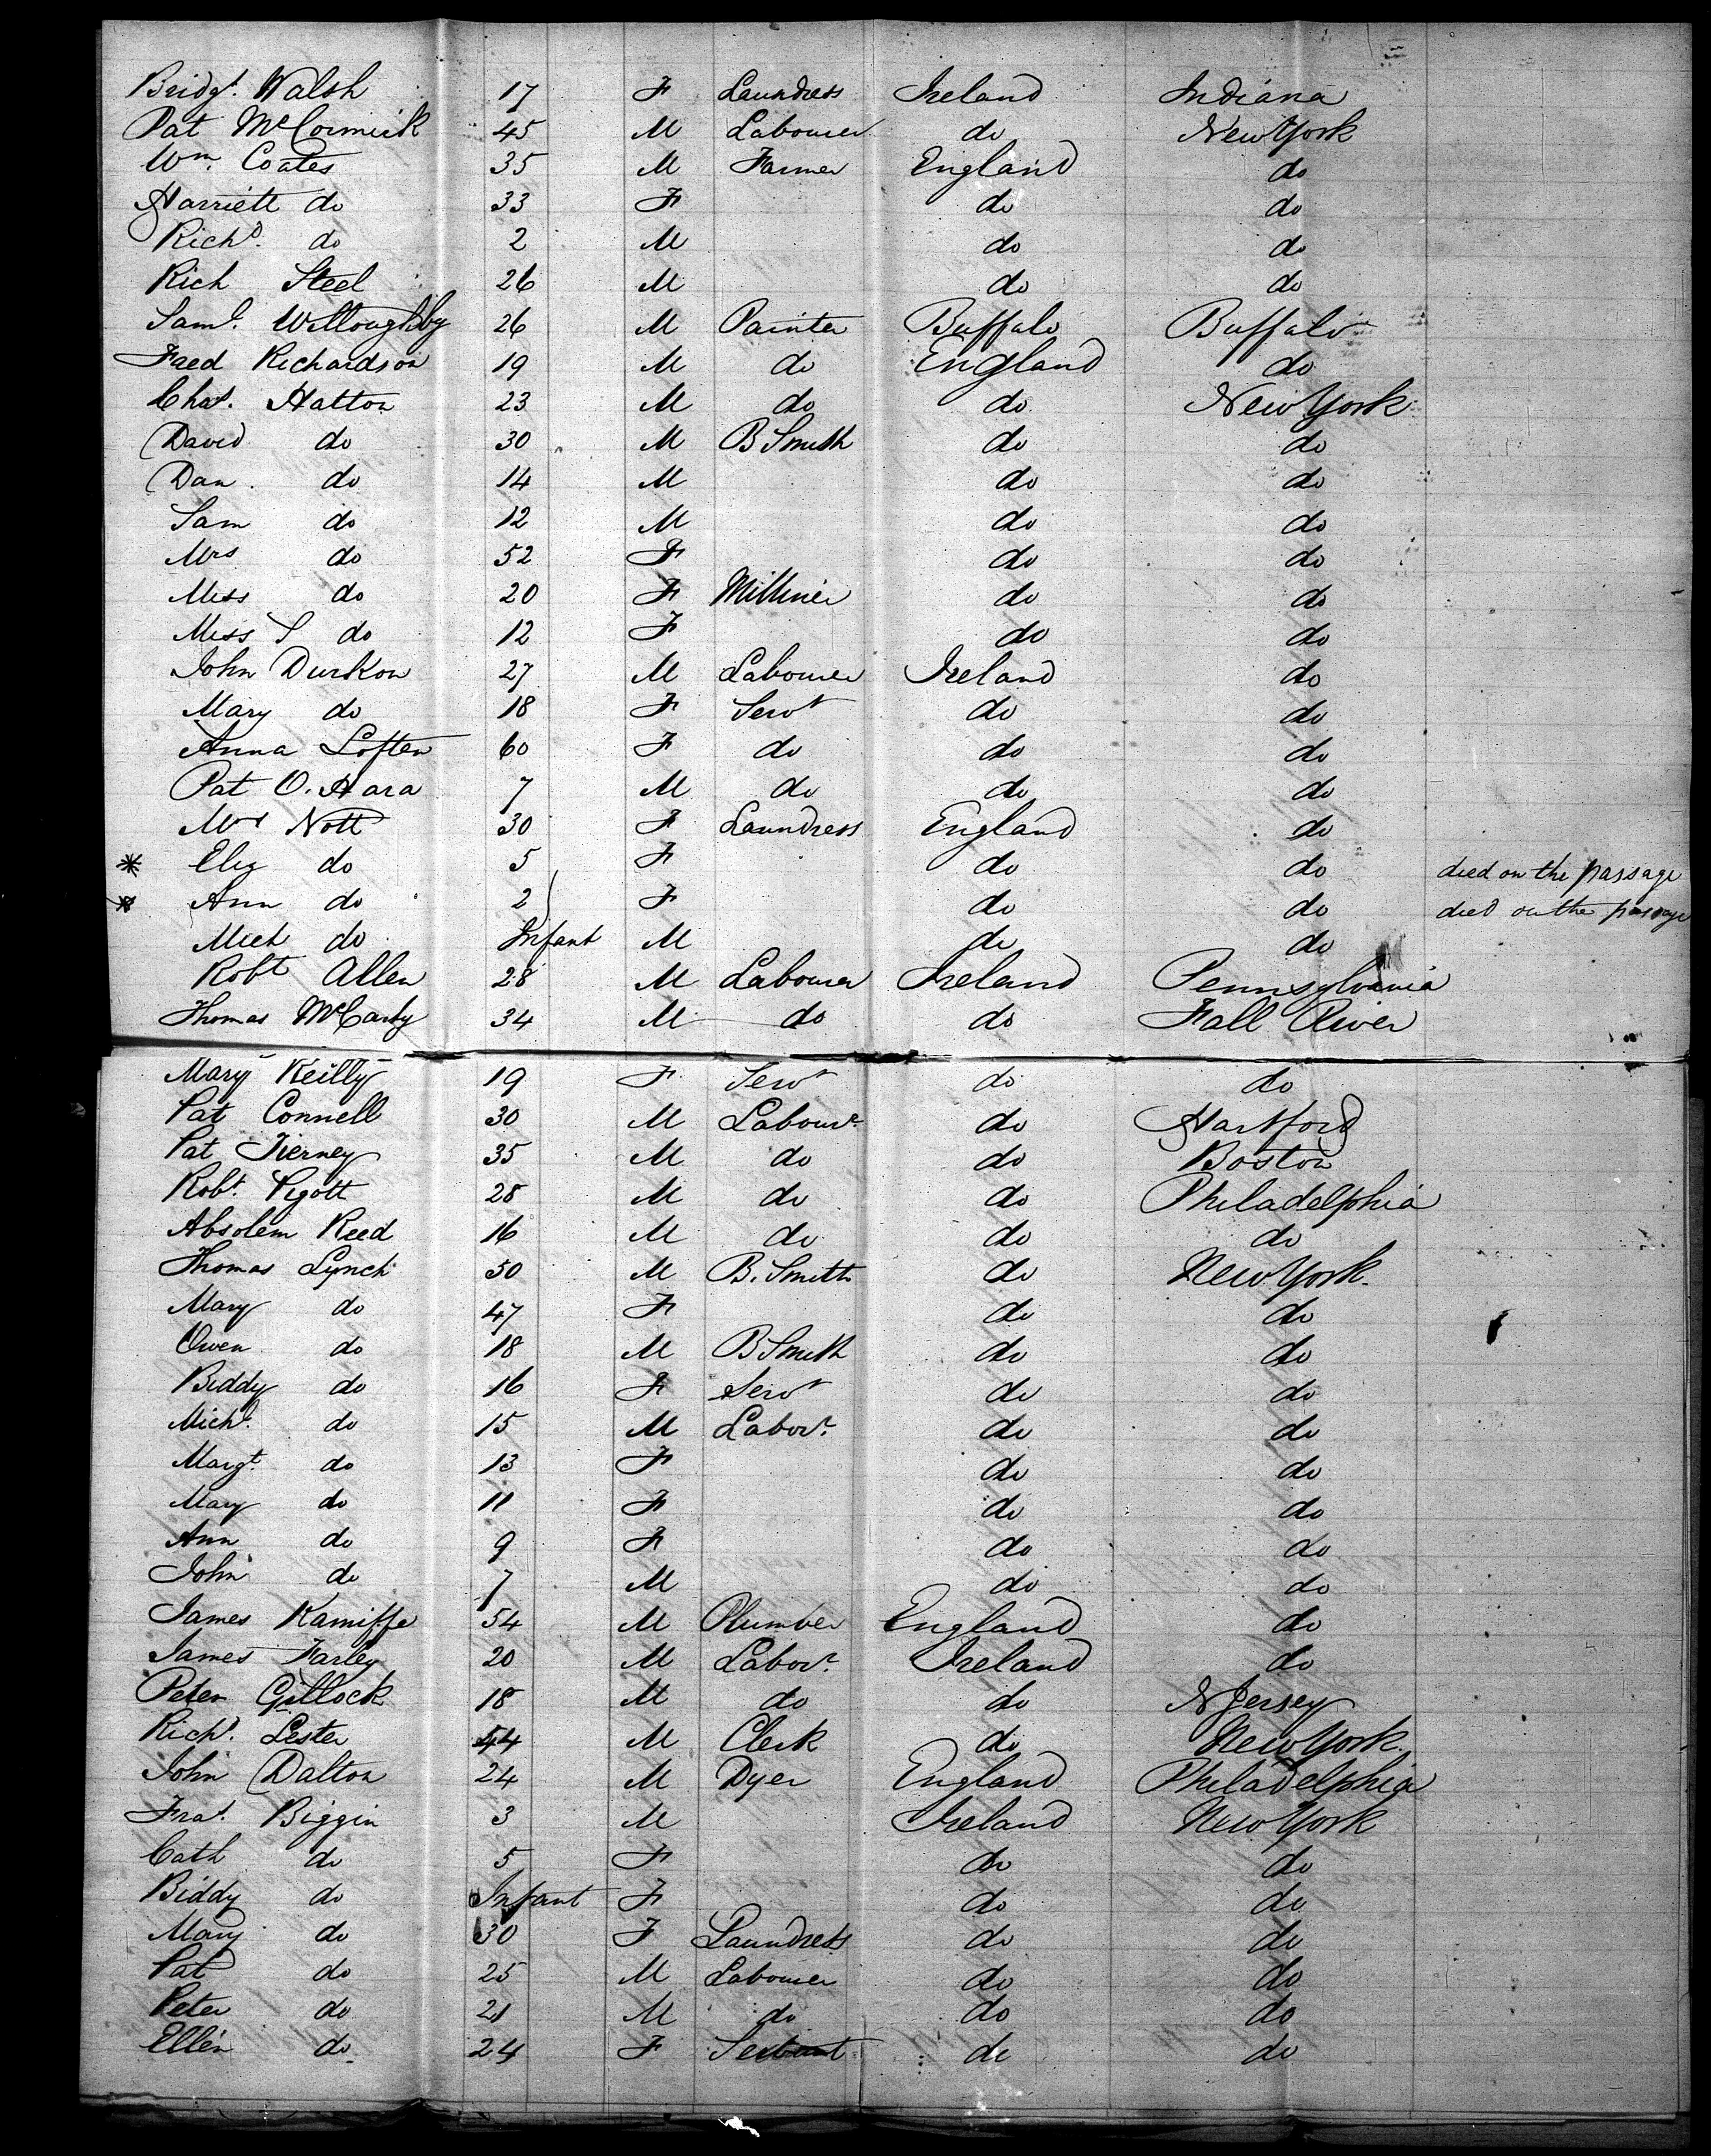 Bridgt. Walsh 17 F Laundress Ireland Indiana
Pat McCormick 45 M Labourer do New York
Wm. Coates 35 M Farmer England do
Harriett do 33 F do do
Richd. do 2 M do do
Rich Steel 26 M do do
Saml. Willoughby 26 M Painter Buffalo Buffalo
Fred Richardson 19 M do England do
Chas. Hatton 23 M do do New York
David do 30 M B Smith do do
Dan. do 14 M do do
Sam do 12 M do do
Mrs do 52 F do do
Miss do 20 F Milliner do do
Miss S do 12 F do do
John Durkon 27 M Labourer Ireland do
Mary do 18 F Servt do do
Anna Loften 60 F do do do
Pat O. Hara 7 M do do do
Mrs Nott 30 F Laundress England do
* Eliz do 5 F do do died on the passage
* Ann do 2 F do do died on the passage
Mich do Infant M do do
Robt Allen 28 M Labourer Ireland Pennsylvania
Thomas McCarty 34 M do do Fall River
Mary Reilly 19 F Servt do do
Pat Connell 30 M Labourr do Hartford
Pat Tierney 35 M do do Boston
Robt. Pigott 28 M do do Philadelphia
Absolem Reed 16 M do do do
Thomas Lynch 50 M B. Smith do New York.
Mary do 47 F do do
Owen do 18 M B Smith do do
Biddy do 16 F Servt do do
Michl. do 15 M Labor. do do
Margt. do 13 F do do
Mary do 11 F do do
Ann do 9 F do do
John do 7 M do do
James 54 M Plumber England do
James Farley 20 M Labor. Ireland do
Peter Gillock 18 M do do N Jersey
Richd. Lester 44 M Clerk do New York.
John Dalton 24 M Dyer England Philadelphia
Fras. Biggin 3 M Ireland New York
Cath do 5 F do do
Biddy do Infant F do do
Mary do 30 F Laundress do do
Pat do 25 M Labourer do do
Peter do 21 M do do do
Ellen do 24 F Servant do do